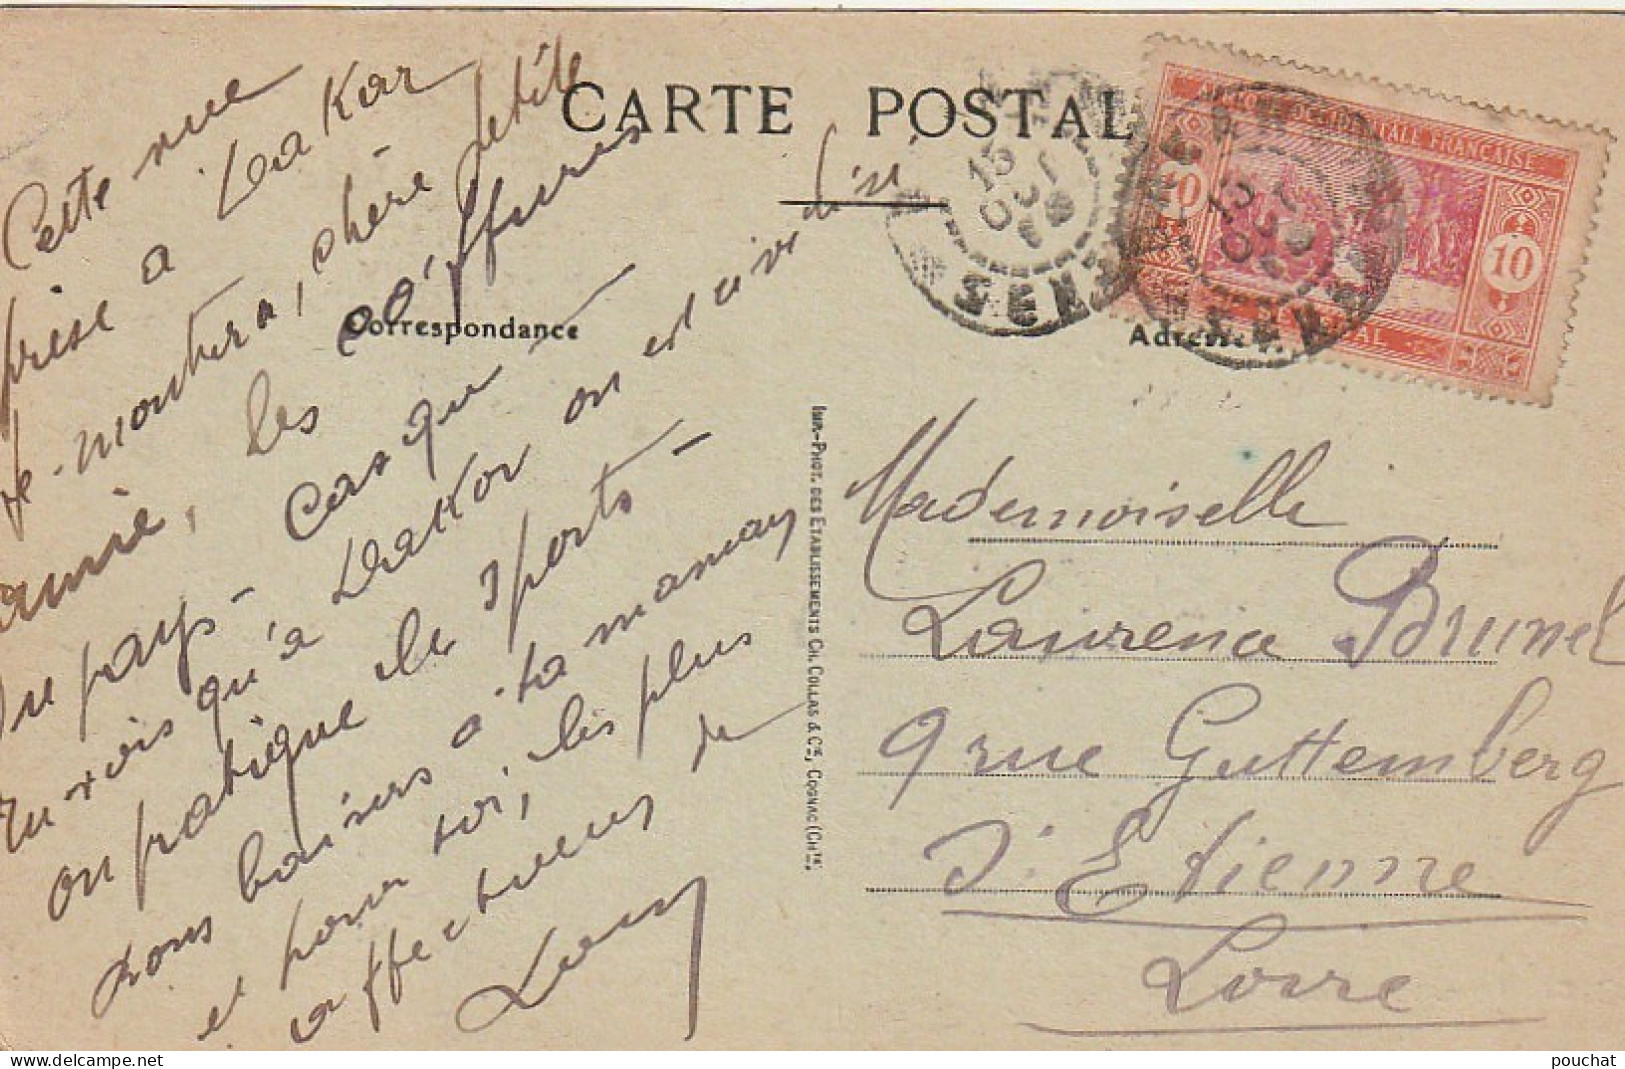 CARTE POSTALE
Correspondance
Adresse
AFRIQUE OCCIDENTALE FRANÇAISE
10
10
SENEGAL
13
OCT
13
OCT
Cette vue
prise a Dakar
te montrera, chère petite
amie, les coiffures
du pays - Casque -
Tu vois qu'à Dakar on est civilisé
on pratique les sports -
Bons baisers a ta maman
et pour toi, les plus
affectueux de
Louis
IMP.-PHOT. DES ETABLISSEMENTS CH. COLLAS & Cie, COGNAC (Chte)
Mademoiselle
Laurence Brunel
9 rue Guttemberg
St Etienne
Loire
pouchat